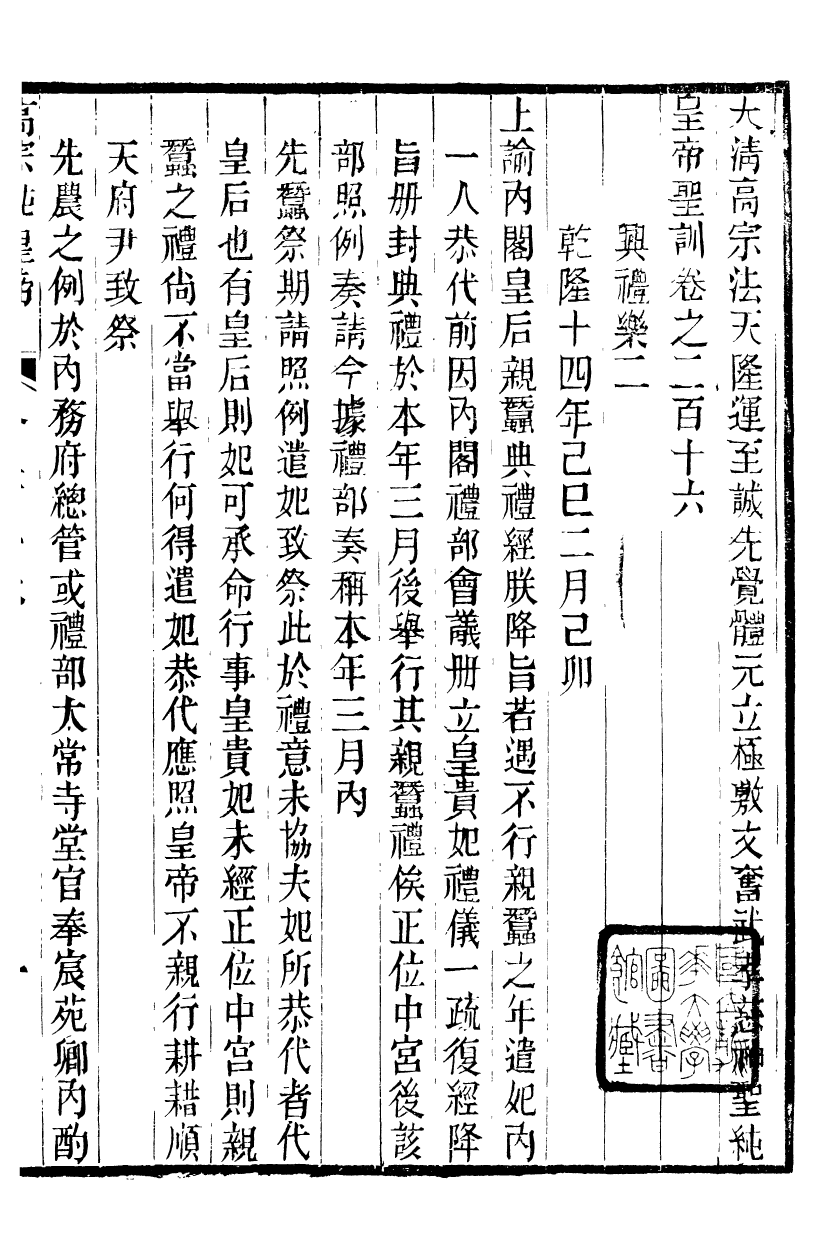 大清高宗法天隆運至誠先覺體元立極敷文奮武孝慈神聖純
皇帝聖訓卷之二百十六
興禮樂二
乾隆十四年己巳二月己卯
上諭內閣皇后親蠶典禮經朕降旨若遇不行親蠶之年遣妃內
一人恭代前因內閣禮部會議册立皇貴妃禮儀一疏復經降
旨册封典禮於本年三月後舉行其親蠶禮俟正位中宮後該
部照例奏請今據禮部奏稱本年三月內
先蠶祭期請照例遣妃致祭此於禮意未協夫妃所恭代者代
皇后也有皇后則妃可承命行事皇貴妃未經正位中宮則親
蠶之禮尚不當舉行何得遣妃恭代應照皇帝不親行耕耤順
天府尹致祭
先農之例於內務府總管或禮部太常寺堂官奉宸苑卿內酌
高宗純皇帝
大學
圖書
館藏